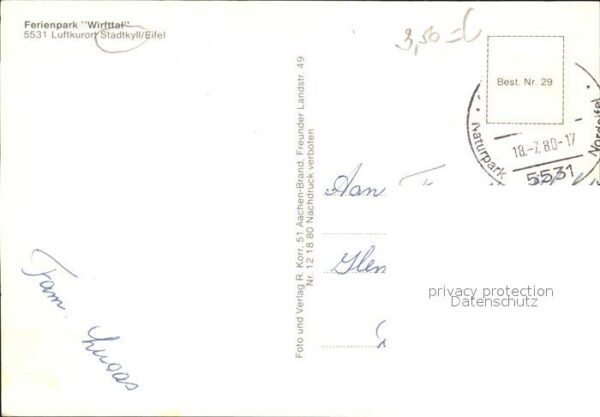 Ferienpark "Wirfttal"
5531 Luftkurort Stadtkyll/Eifel
3,50
Best. Nr. 29
Naturpark Nordeifel
18.-7.80-17
5531
Foto und Verlag R. Korr. 51 Aachen-Brand, Freunder Landstr. 49
Nr. 12 18 80 Nachdruck verboten
Aan
Glen
Fam. Lucas
privacy protection
Datenschutz